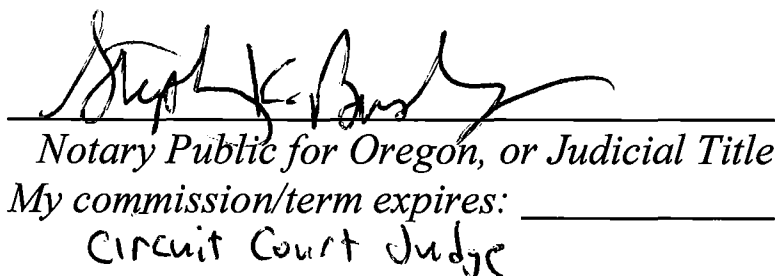 Stephen K. Bushong
Notary Public for Oregon, or Judicial Title
My commission/term expires:
Circuit Court Judge